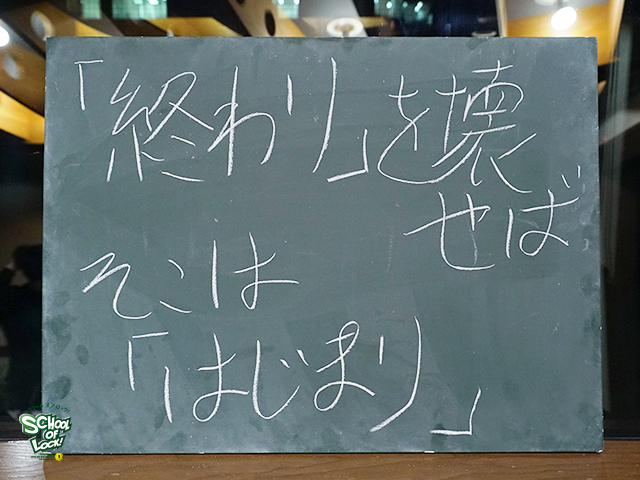 「終わり」を壊
せば
そこは
「はじまり」
SCHOOL
OF
LOCK!